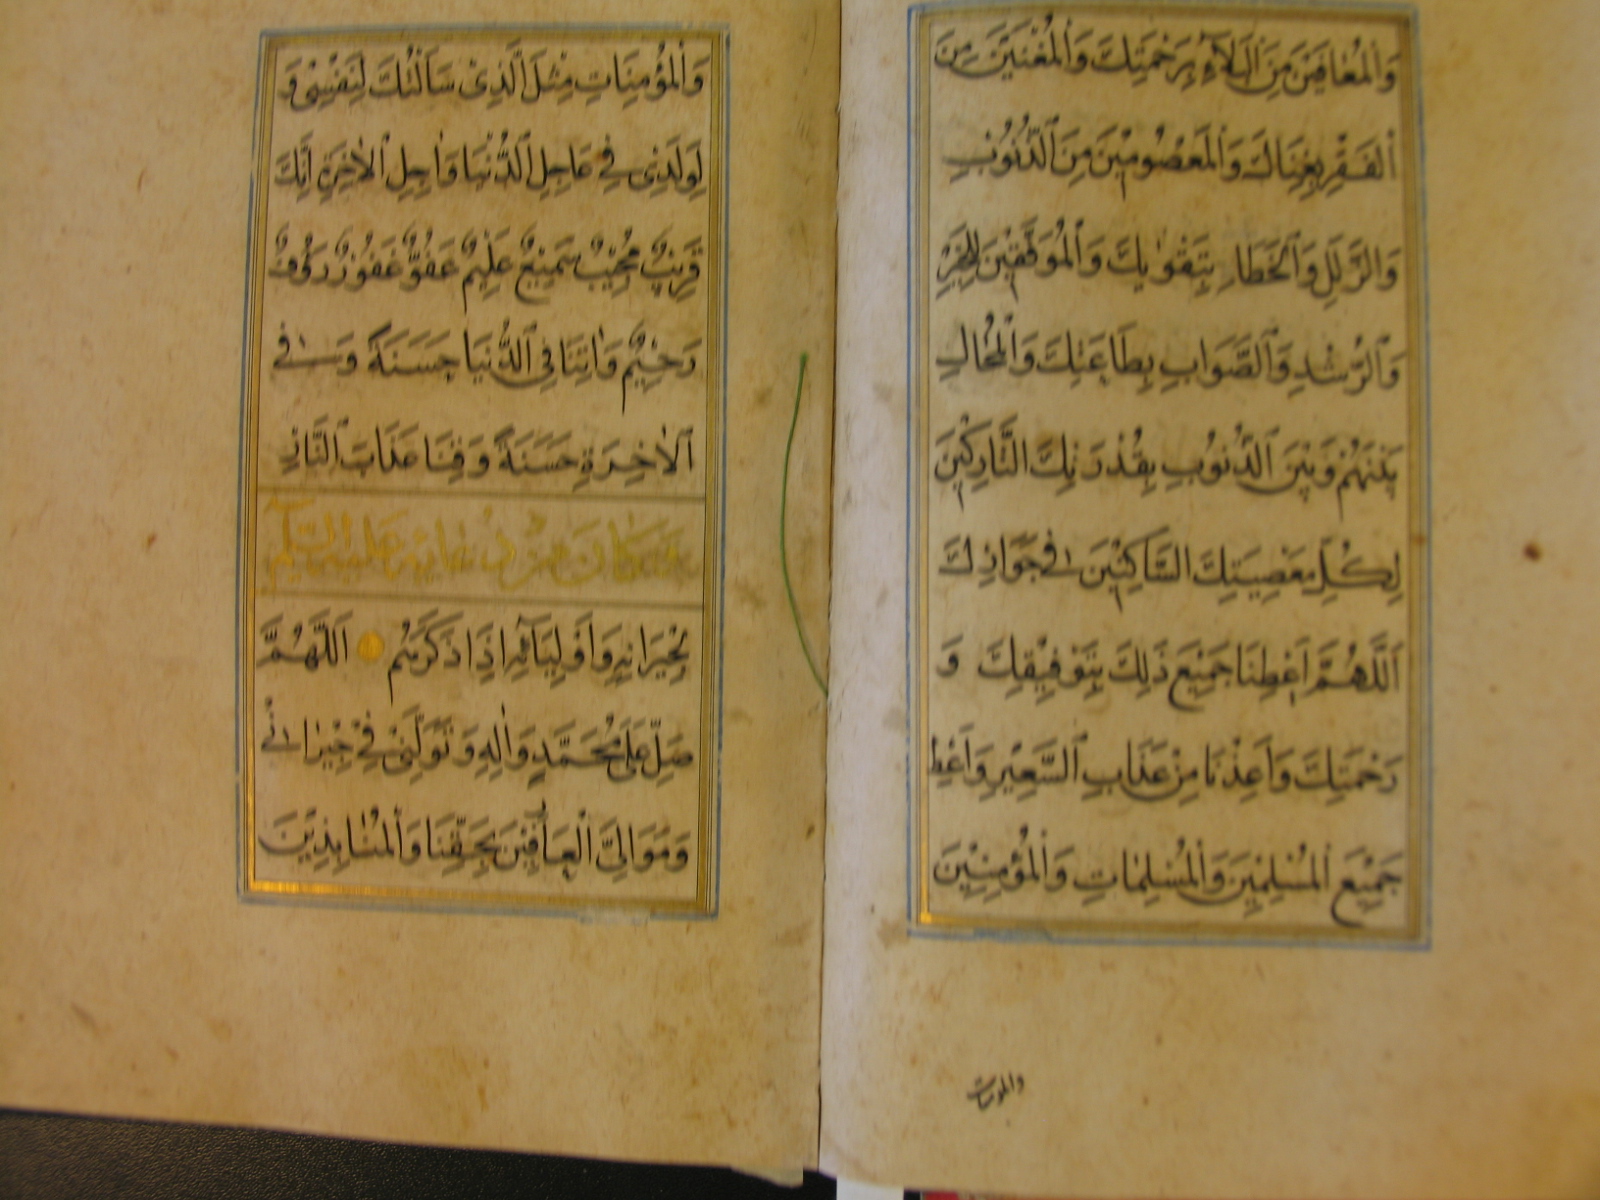 وَالْمُعَافَيْنَ مِنَ الْبَلَاءِ بِرَحْمَتِكَ وَالْمُغْنَيْنَ مِنَ
الْفَقْرِ بِغِنَاكَ وَالْمَعْصُومِيْنَ مِنَ الذُّنُوبِ
وَالزَّلَلِ وَالْخَطَاءِ بِتَقْوٰيكَ وَالْمُوَفَّقِيْنَ لِلْخَيْرِ
وَالرُّشْدِ وَالصَّوَابِ بِطَاعَتِكَ وَالْمُحَالِ
بَيْنَهُمْ وَبَيْنَ الذُّنُوبِ بِقُدْرَتِكَ التَّارِكِيْنَ
لِكُلِّ مَعْصِيَتِكَ السَّاكِنِيْنَ فِي جَوَارِكَ
اَللَّهُمَّ اَعْطِنَا جَمِيْعَ ذٰلِكَ بِتَوْفِيْقِكَ وَ
رَحْمَتِكَ وَاَعِذْنَا مِنْ عَذَابِ السَّعِيْرِ وَاَعْطِ
جَمِيْعَ الْمُسْلِمِيْنَ وَالْمُسْلِمَاتِ وَالْمُؤْمِنِيْنَ
والمومنات
وَالْمُؤْمِنَاتِ مِثْلَ الَّذِيْ سَاَلْتُكَ لِنَفْسِيْ وَ
لِوَلَدِيْ فِي عَاجِلِ الدُّنْيَا وَاٰجِلِ الْاٰخِرَةِ اِنَّكَ
قَرِيْبٌ مُجِيْبٌ سَمِيْعٌ عَلِيْمٌ عَفُوٌّ غَفُوْرٌ رَؤُفٌ
رَحِيْمٌ وَاٰتِنَا فِي الدُّنْيَا حَسَنَةً وَ فِي
الْاٰخِرَةِ حَسَنَةً وَقِنَا عَذَابَ النَّارِ
وَكَانَ مِنْ دُعَائِهِ عَلَيْهِ السَّلَامُ
لِجِيْرَانِهِ وَاَوْلِيَائِهِ اِذَا ذَكَرَهُمْ اَللَّهُمَّ
صَلِّ عَلَى مُحَمَّدٍ وَاٰلِهِ وَتَوَلَّنِيْ فِيْ جِيْرَانِيْ
وَمَوَالِيَّ الْعَارِفِيْنَ بِحَقِّنَا وَالْمُنَابِذِيْنَ